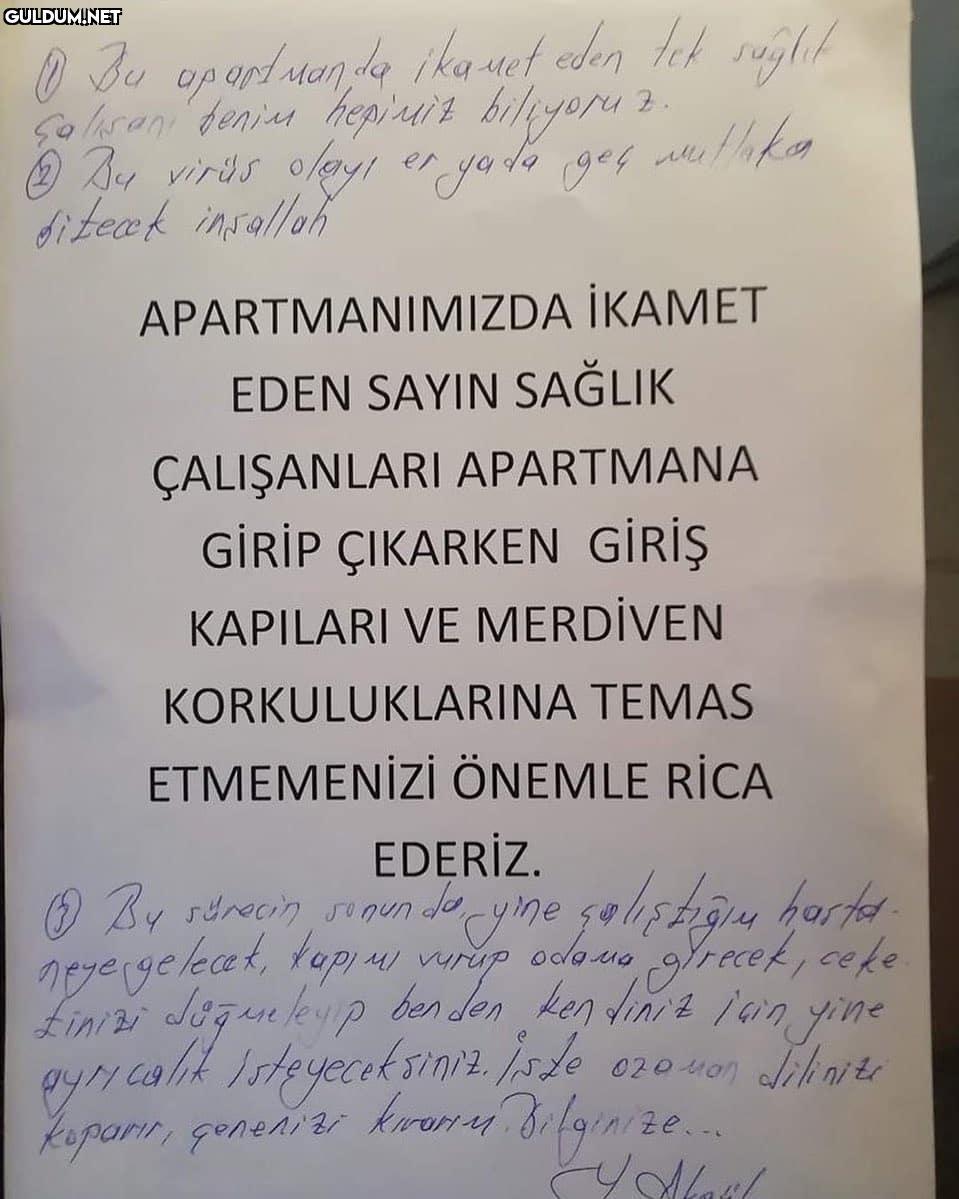 GULDUM.NET
① Bu apartmanda ikamet eden tek sağlık
çalışanı benim hepimiz biliyoruz.
② Bu virüs olayı er yada geç mutlaka
bitecek inşallah
APARTMANIMIZDA İKAMET
EDEN SAYIN SAĞLIK
ÇALIŞANLARI APARTMANA
GİRİP ÇIKARKEN GİRİŞ
KAPILARI VE MERDİVEN
KORKULUKLARINA TEMAS
ETMEMENİZİ ÖNEMLE RİCA
EDERİZ.
③ Bu sürecin sonunda, yine çalıştığım hasta-
neye gelecek, kapımı vurup odama girecek, ceke-
tinizi düğmeleyip benden kendiniz için yine
ayrıcalık isteyeceksiniz. İşte ozaman dilinizi
koparır, çenenizi kırarım. Bilginize...